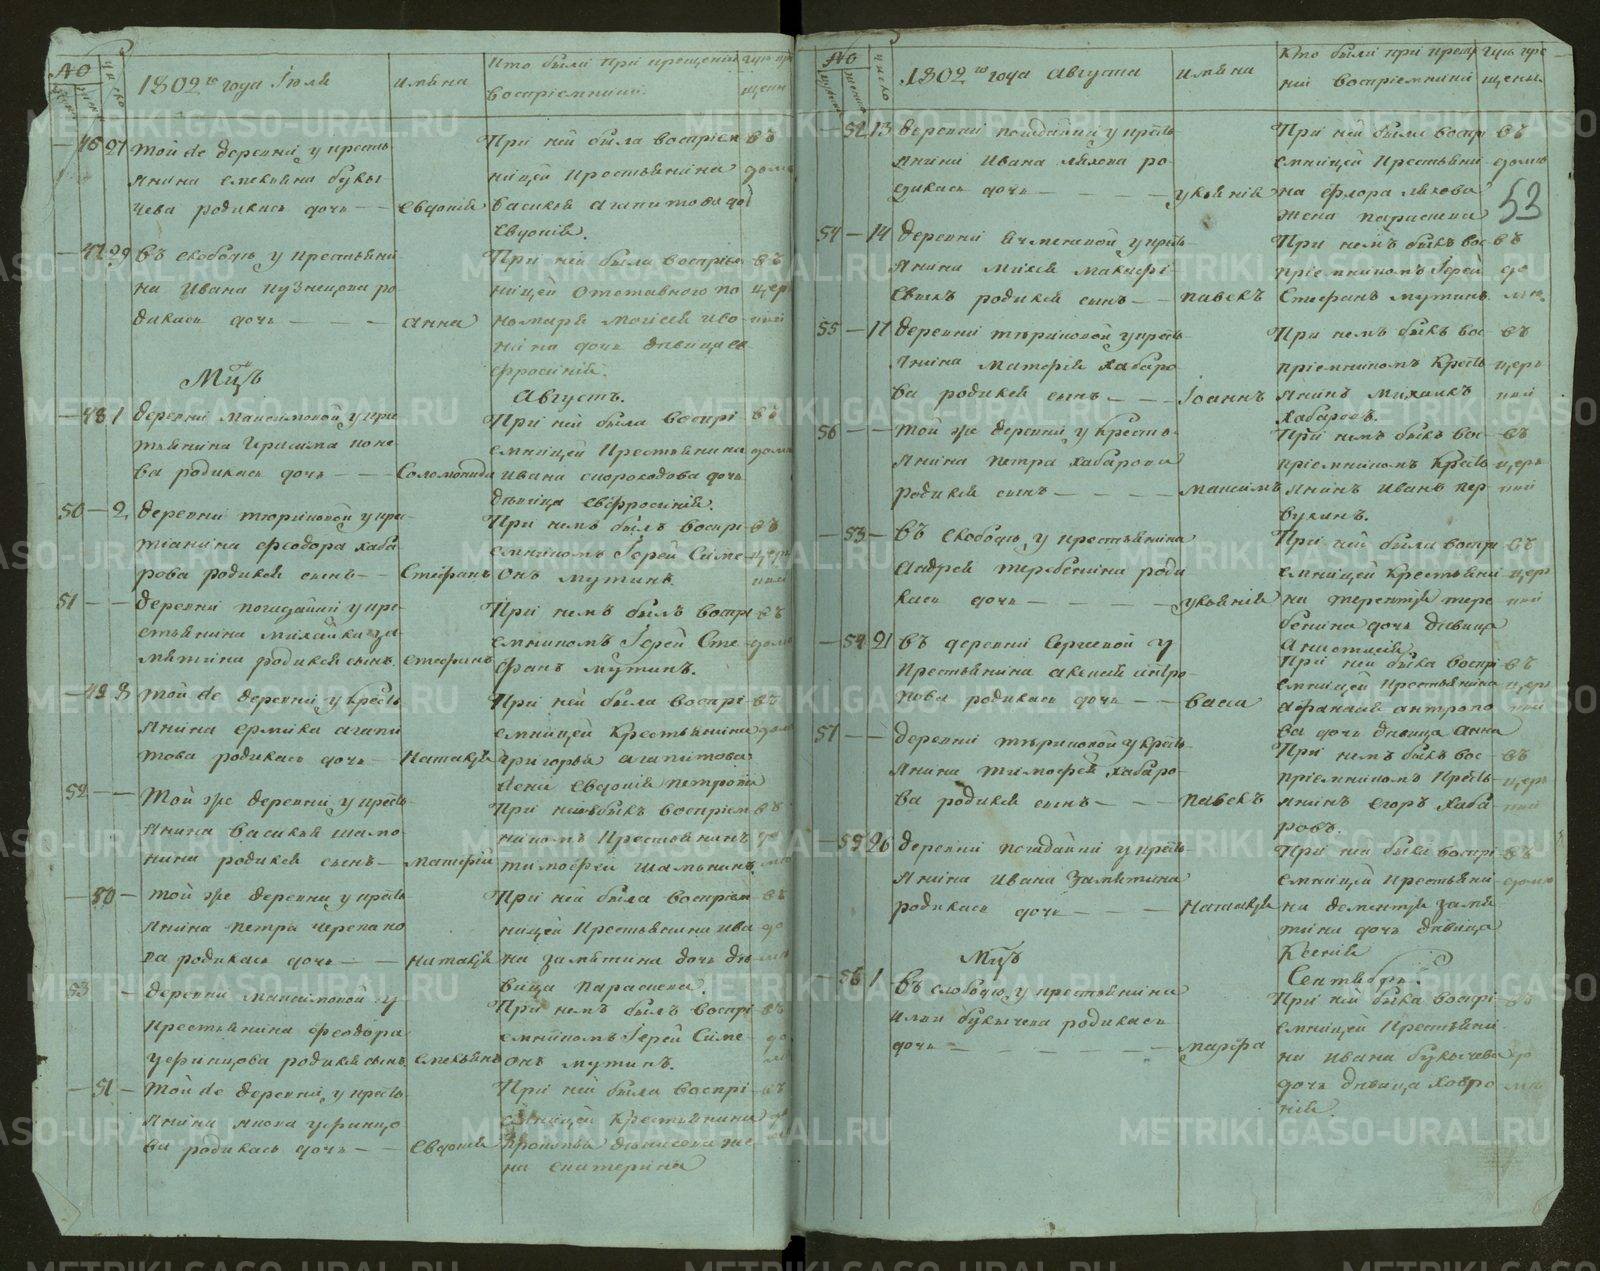 №
число
1802го года Іюля
имѣна
Кто были при крещеніи
воспріемники.
46 27
той де деревни у кресть
янина
чева родилась дочь — —
Евдокія
При ней была воспріем
ницей крестьянина
Василья Агапитова доч
Евдокія.
въ
дому
47 29
въ слободѣ у крестьяни
на Ивана Кузнецова ро
дилась дочь — — —
Анна
При ней была воспріем
ницей отставного по
номаря Моисея
нина дочь дѣвица Ев
фросинія.
въ
цер
кви
Мцъ
Августъ.
48 1
деревни Максимовой у кре
стьянина
ва родилась дочь — —
Соломонида
При ней была воспрі
емницей крестьянина
Ивана Скороходова дочь
дѣвица Евфросинія.
въ
дому
50 — 2
деревни Тюриковой у кре
стіанина Феодора Хаба
рова родился сынъ —
Стефанъ
При немъ былъ воспрі
емникомъ Іерей Симе
онъ Мутинъ
въ
церк
кви
51 — —
деревни Погадайки у кре
стьянина Михайла За
мятина родился сынъ
Стефанъ
При немъ былъ воспрі
емникомъ Іерей Сте
фанъ Мутинъ.
въ
дому
— 49 8
той де деревни у кресть
янина Ермила Агапи
това родилась дочь —
Наталья
При ней была воспрі
емницей крестьянина
Григорья Агапитова
жена Евдокія Петрова
въ
52 — —
той же деревни у кресть
янина Василья Шамо
нина родился сынъ —
Матфій
При немъ былъ воспріем
никомъ крестьянинъ
Тимофей Шамонинъ.
въ
— 50 —
той же деревни у кресть
янина Петра Черепано
ва родилась дочь — —
Наталья
При ней была воспріем
ницей крестьянина Ива
на Замятина дочь дѣ
вица Параскева.
въ
до
53 —
деревни Максимовой у
крестьянина Феодора
Уфинцова родился сынъ
Емельянъ
При немъ былъ воспрі
емникомъ Іерей Симе
онъ Мутинъ.
въ
до
— 51 —
той де деревни у кресть
янина Якова Уфинцо
ва родилась дочь — —
Евдокія
При ней была воспрі
емницей крестьянина
Прокопья Денисова же
на Екатерина
въ
№
число
1802го года Августа
имѣна
Кто были при креще
ніи воспріемники
гдѣ кре
щены
53
— 52 13
деревни Погадайки у кресть
янина Ивана Ляхова ро
дилась дочь — — —
Ульянія
При ней была воспрі
емницей крестьяни
на Флора Ляхова
жена Параскева
въ
дому
54 — 14
деревни Ячменевой у кресть
янина
родился сынъ — —
Павелъ
При немъ былъ вос
пріемникомъ Іерей
Стефанъ Мутинъ
въ
до
му
55 — 17
деревни Тюриковой у кресть
янина Матфія Хабаро
ва родился сынъ — — —
Іоаннъ
При немъ былъ вос
пріемникомъ кресть
янинъ Михаилъ
Хабаровъ.
въ
церк
кви
56 — —
той же деревни у кресть
янина Петра Хабарова
родился сынъ — — — —
Максимъ
При немъ былъ вос
пріемникомъ кресть
янинъ Иванъ Пер
вухинъ.
въ
церк
кви
— 53 —
въ слободѣ у крестьянина
Андрея Теребенина роди
лась дочь — — — —
Ульянія
При ней была воспрі
емницей крестьяни
на Терентья Тере
бенина дочь дѣвица
Анастасія
въ
церк
кви
— 54 21
въ деревни Сергиевой у
крестьянина Алексія Антро
пова родилась дочь — —
Васса
При ней была воспрі
емницей крестьянина
Афанасія Антропо
ва дочь дѣвица Анна
въ
церк
кви
57 — —
деревни Тюриковой у кресть
янина Тимофея Хабаро
ва родился сынъ — —
Павелъ
При немъ былъ вос
пріемникомъ кресть
янинъ Егоръ Хаба
ровъ.
въ
церк
кви
— 55 26
деревни Погадайки у кресть
янина Ивана Замятина
родилась дочь — — —
Наталья
При ней была воспрі
емницей крестьяни
на Дементья Замя
тина дочь дѣвица
Ксенія
въ
дому
Мцъ
Сентябрь.
— 56 1
въ слободѣ у крестьянина
Ильи Булычева родилась
дочь — — — — — —
Марфа
При ней была воспрі
емницей крестьяни
на Ивана Булычева
дочь дѣвица Хавро
нія.
въ
METRIKI.GASO-URAL.RU